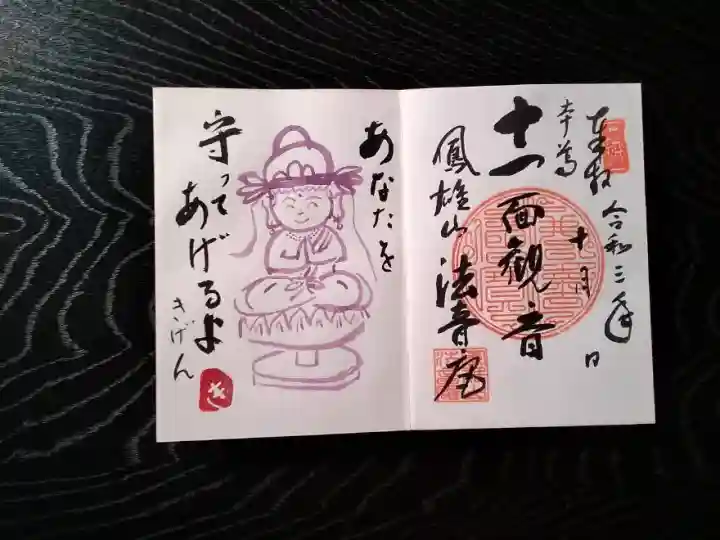 奉拝 令和三年 十月 日
本尊
十一面観音
鳳雄山 法音庵
あなたを
守って
あげるよ
きげん
き